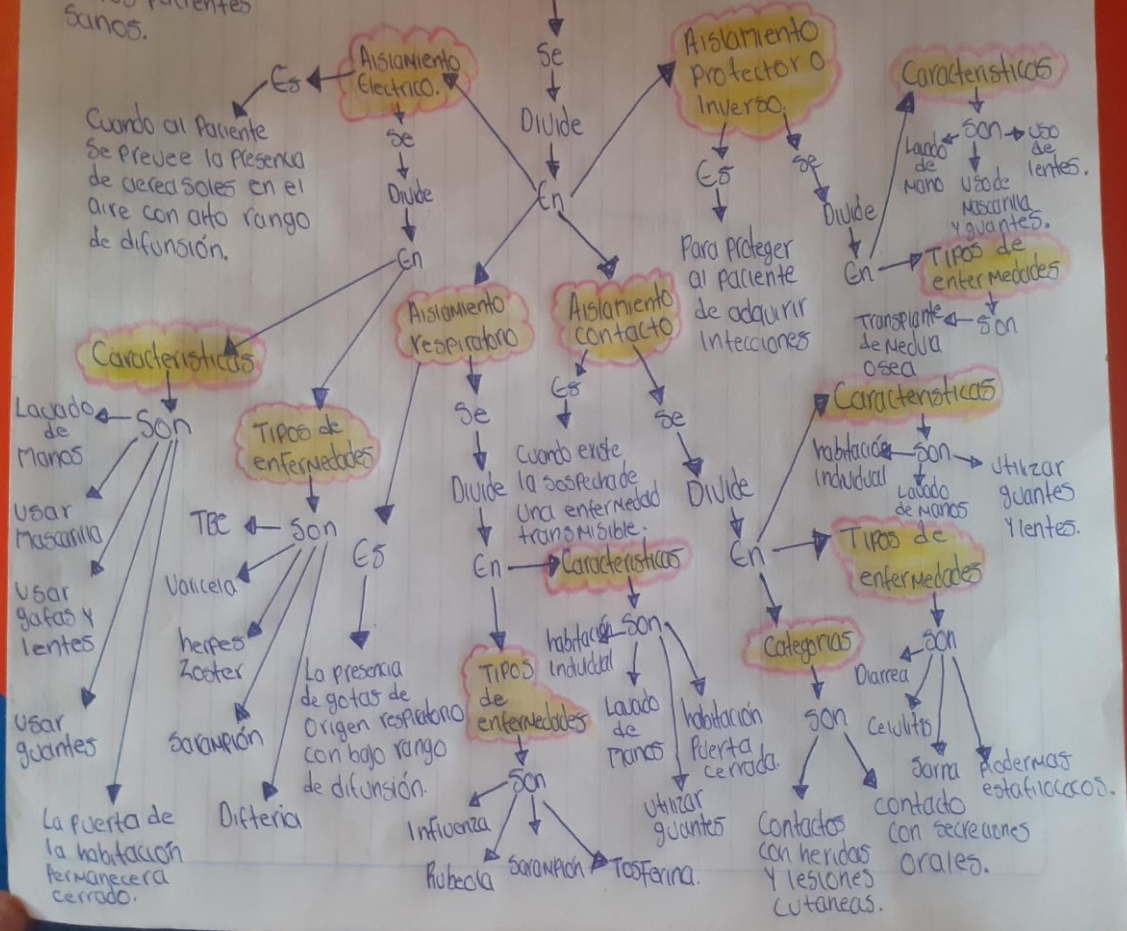 pacientes
Sanos.
Se
Divide
En
Aislamiento
Electrico.
Es
Cuando al Paciente
Se Prevee la Presencia
de aereasoles en el
aire con alto rango
de difunsión.
Se
Divide
En
Características
Son
Lavado
de
Manos
usar
Mascarilla
usar
gafas y
lentes
usar
guantes
La puerta de
la habitación
Permanecera
cerrado.
Tipos de
enfermedades
Son
TBC
Varicela
herpes
Zoster
Sarampión
Difteria
Aislamiento
respiratorio
Es
La presencia
de gotas de
Origen respiratorio
con bajo rango
de difunsión.
Se
Divide
En
Características
Son
habitación
individual
Lavado
de
manos
utilizar
guantes
habitación
Puerta
cerrada.
Tipos
de
enfermedades
Son
Influenza
Rubeola
Sarampión
Tosferina.
Aislamiento
contacto
Es
Cuando existe
la sospecha de
una enfermedad
transmisible.
Se
Divide
En
Características
Son
habitación
individual
Lavado
de Manos
utilizar
guantes
y lentes.
Tipos de
enfermedades
Son
Diarrea
Celulitis
Sarna
Piodermas
estafilococos.
Categorias
Son
Contactos
con heridas
y lesiones
cutaneas.
contacto
con secreciones
orales.
Aislamiento
Protector o
Inverso.
Es
Para Proteger
al paciente
de adquirir
Infecciones
Se
Divide
En
Características
Son
Lavado
de
Mano
uso de
Mascarilla
y guantes.
uso
de
lentes.
Tipos de
enfermedades
Son
Transplante
de Medula
Osea